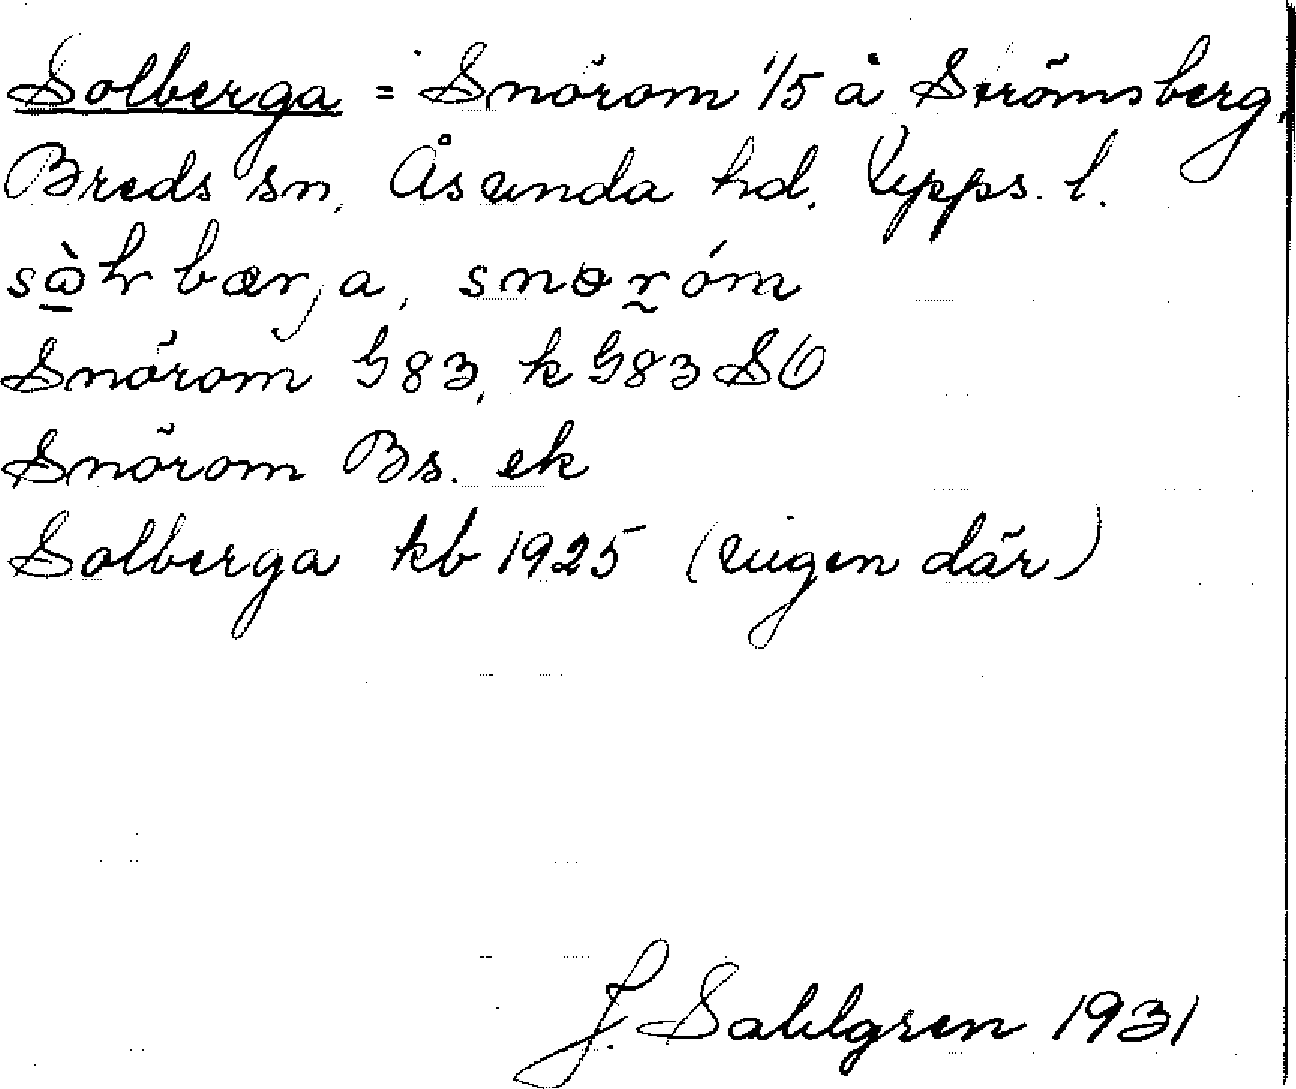 Solberga = Snörom 1/5 å Strömsberg,
Breds sn, Åsunda hd. Upps. l.
snөróm
Snörom G83, k G83 SÖ
Snörom Bs. ek
Solberga kb 1925 (ingen där)
J. Sahlgren 1931